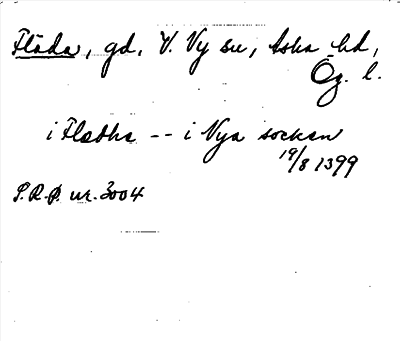 Fläda, gd, V. Ny sn, Aska hd,
Ög. l.
i Flædha -- i Nya sockan
19/8 1399
S.R.P. nr. 3004